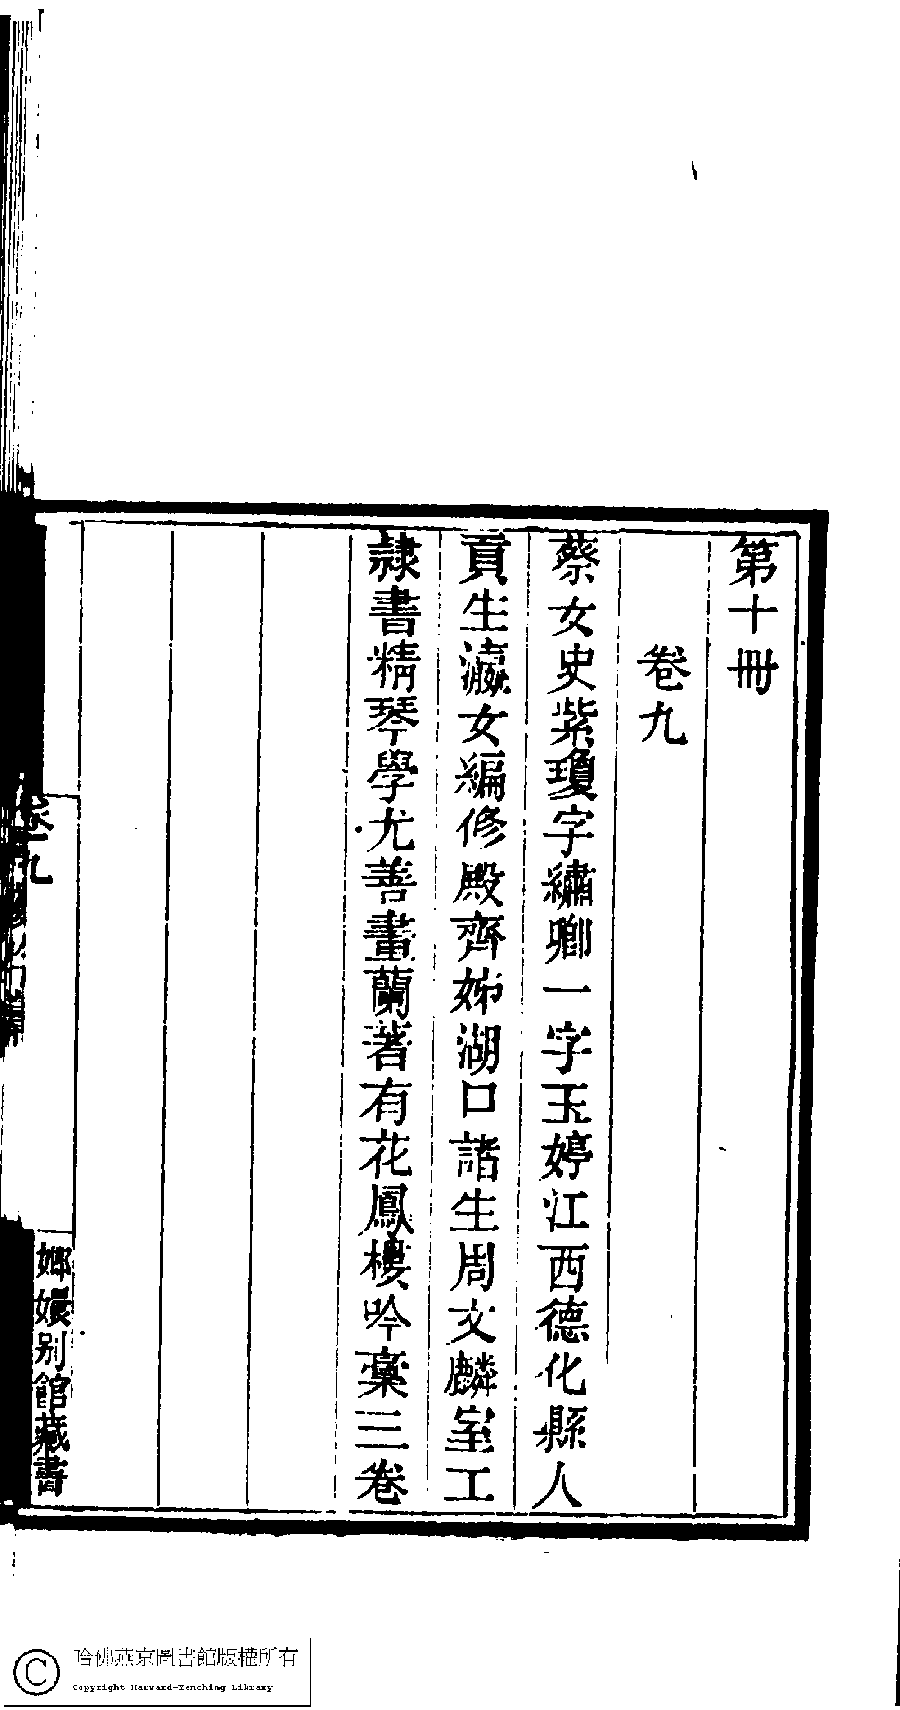 第十冊
卷九
蔡女史紫瓊字繡卿一字玉婷江西德化縣人
貢生瀛女編修殿齊姊湖口諸生周文麟室工
隷書精琴學尤善畫蘭著有花鳳樓吟稾三卷
卷九
嫏嬛別館藏書
哈佛燕京圖書館版權所有
Copyright Harvard-Yenching Library